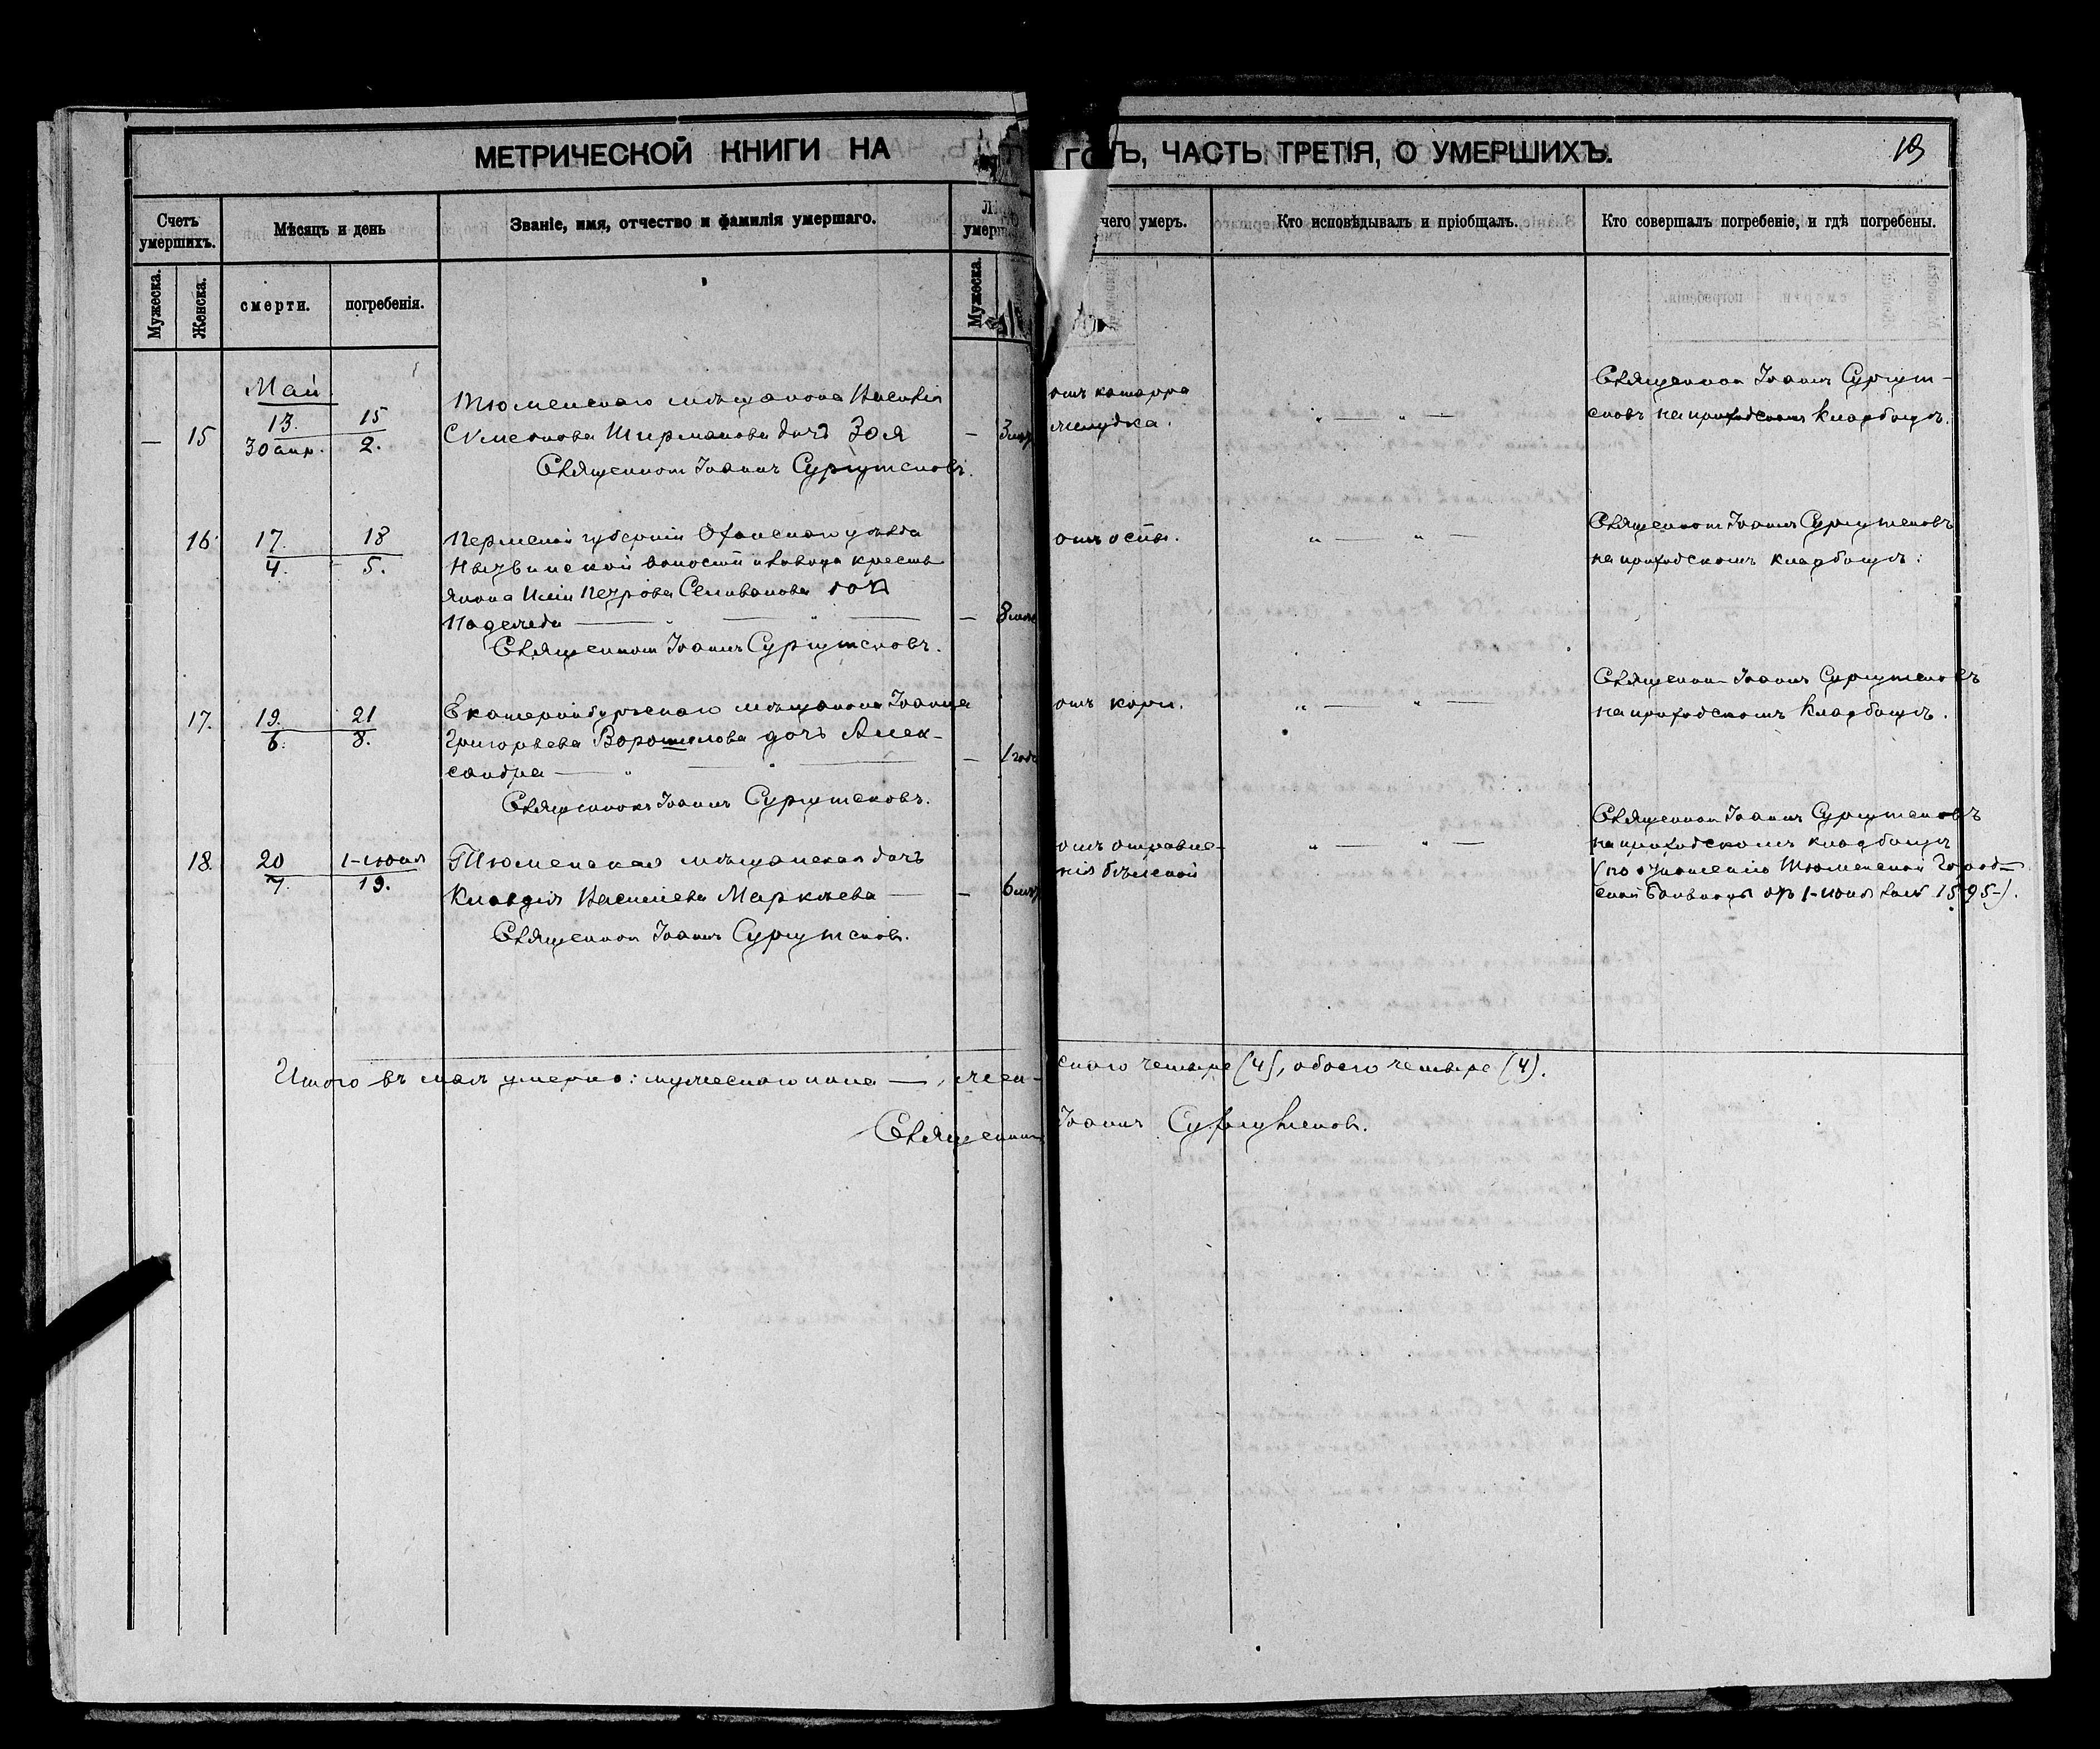 МЕТРИЧЕСКОЙ КНИГИ НА
ГОДЪ, ЧАСТЬ ТРЕТІЯ, О УМЕРШИХЪ.
Счетъ умершихъ.
Мѣсяцъ и день
Званіе, имя, отчество и фамилія умершаго.
чего умеръ.
Кто исповѣдывалъ и пріобщалъ.
Кто совершалъ погребеніе, и гдѣ погребены.
Мужеска.
Женска.
смерти.
погребенія.
Мужеска.
Май.
— 15
13. 15
30 апр. 2.
Тюменскаго мѣщанина
дочь Зоя
Священникъ Іоаннъ Сургутсковъ.
— 3 мѣс
отъ катарра
желудка.
Священникъ Іоаннъ Сургут-
сковъ на приходскомъ кладбищѣ.
16
17. 18
4. 5.
Пермской губерніи Оханскаго уѣзда
Нытвинской волости и завода кресть
янина Иліи Петрова Селиванова дочь
Надежда
— 8 мѣс
Священникъ Іоаннъ Сургутсковъ.
отъ оспы.
Священникъ Іоаннъ Сургутсковъ
на приходскомъ кладбищѣ.
17.
19. 21
6. 8.
Екатеринбургскаго мѣщанина Іоанна
Григорьева Ворошилова дочь Алек-
сандра
— 1 года
Священникъ Іоаннъ Сургутсковъ.
отъ кори.
Священникъ Іоаннъ Сургутсковъ
на приходскомъ кладбищѣ.
18.
20 1-іюня
7. 19.
Тюменская мѣщанская дочь
Клавдія Василіева Маркиева
— 6 мѣс
Священникъ Іоаннъ Сургутсковъ.
отъ отравле-
нія бѣленой
Священникъ Іоаннъ Сургутсковъ
на приходскомъ кладбищѣ
(по отношенію Тюменской Город-
ской больницы отъ 1-іюня за № 1595-).
Итого въ маѣ умерло: мужескаго пола —, жен-
скаго четыре (4), обоего четыре (4).
Священникъ Іоаннъ Сургутсковъ.